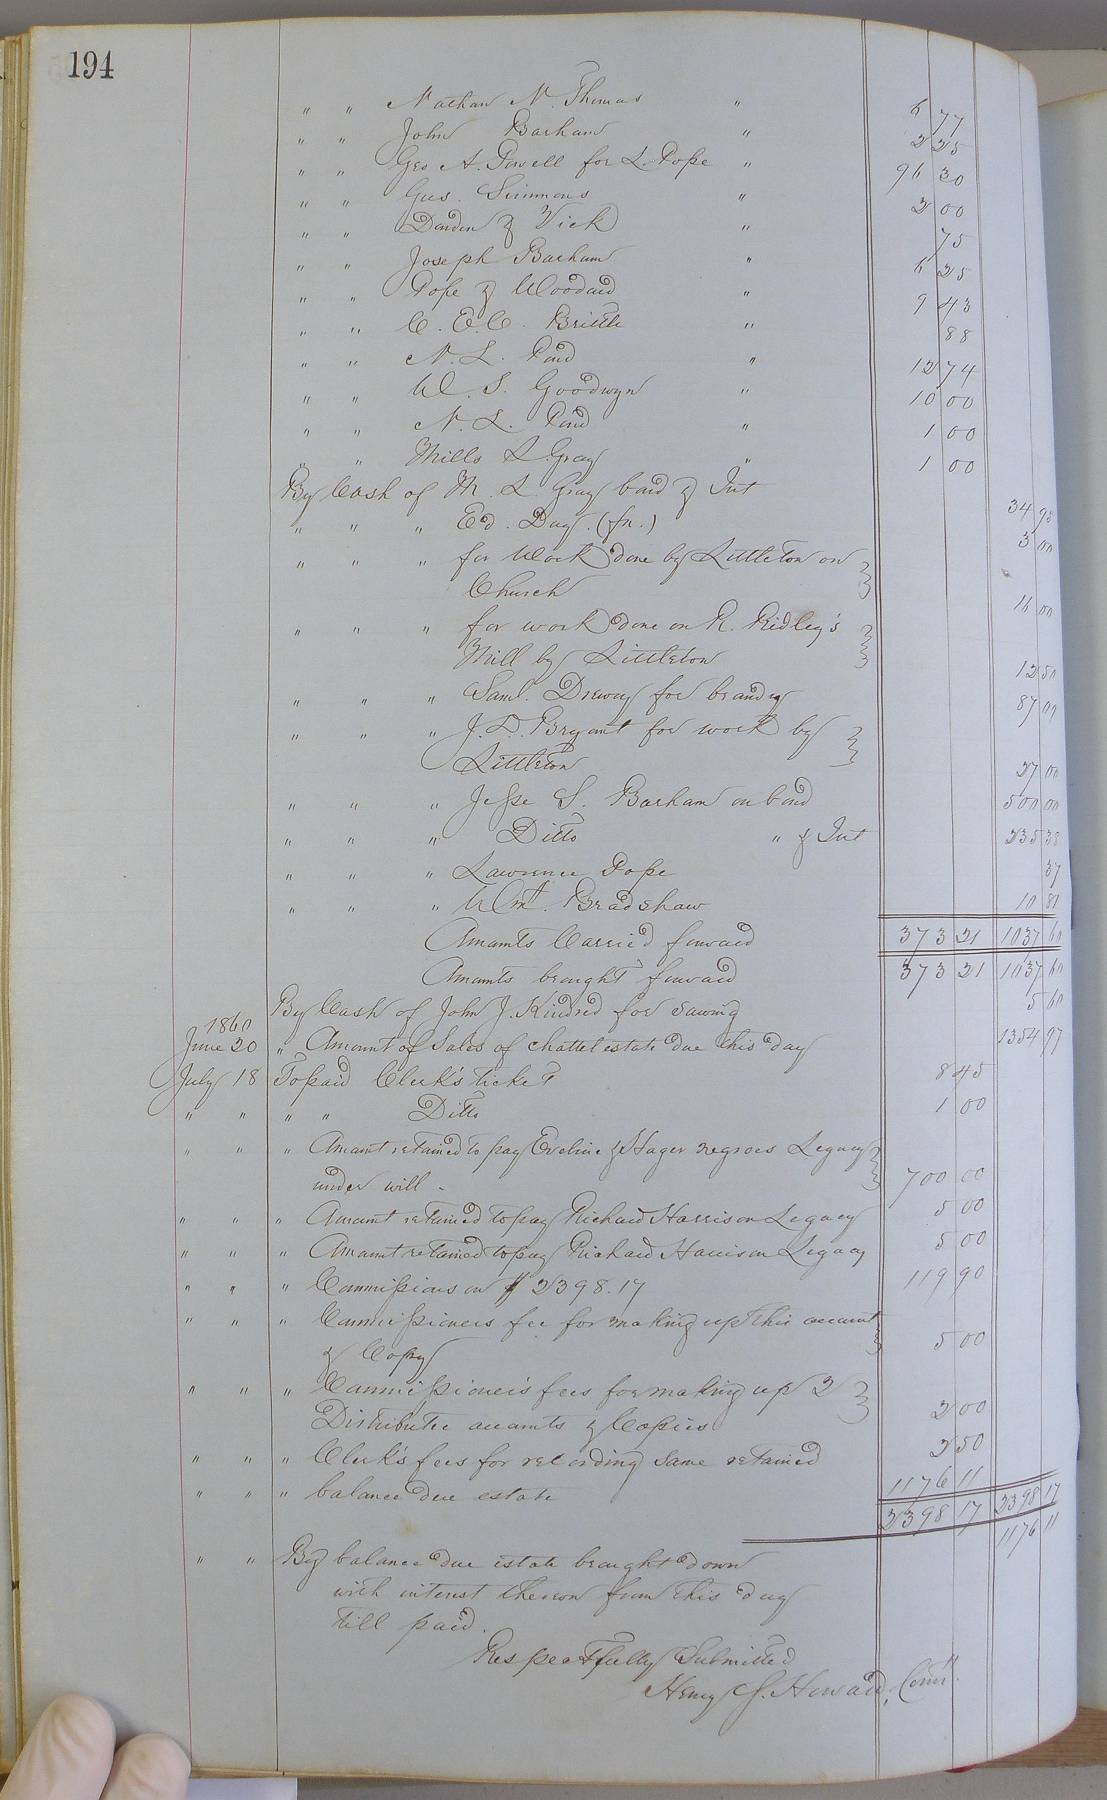 194
" " Nathan N. Thomas " 6 77
" " John Barham " 2 25
" " Geo A. Powell for L. Pope " 96 30
" " Gus. Simmons " 2 00
" " Darden & Vick " 75
" " Joseph Barham " 6 25
" " Pope & Woodard " 9 43
" " C. E. C. Brittle " 88
" " N. L. Pond " 12 74
" " W. S. Goodwyn " 10 00
" " N. L. Pond " 1 00
" " Mills L Gray " 1 00
By Cash of M. L Gray bond & Int 34 98
" " " Ed. Day. (fn.) 3 00
" " " for work done by Littleton on
Church 16 00
" " " for work done on R. Ridley's
Mill by Littleton 12 50
" " " Saml. Drewry for brandy 87 09
" " " J. D. Bryant for work by
Littleton 27 00
" " " Jesse S. Barham on bond 500 00
" " " Ditto " & Int 235 38
" " " Lawrence Pope 37
" " " Wm. Bradshaw 10 81
Amounts Carried forward 373 21 1037 60
Amounts brought forward 373 21 1037 60
By Cash of John J. Kindred for sawing 5 60
1860
June 20 " Amount of Sales of chattel estate due this day 1354 97
July 18 To paid Clerk's ticket 8 45
" " " " Ditto 1 00
" " " Amount retained to pay Eveline & Hager negroes Legacy
under will. 700 00
" " " Amount retained to pay Richard Harrison Legacy 5 00
" " " Amount retained to pay Richard Harrison Legacy 5 00
" " " Commissions on $2398.17 119 90
" " " Commissioners fee for making up this account
& Copy 5 00
" " " Commissioner's fees for making up 2
Distributee accounts & Copies 2 00
" " " Clerk's fees for recording same retained 2 50
" " " balance due estate 1176 11
2398 17 2398 17
1176 11
" " By balance due estate brought down
with interest thereon from this day
till paid.
Respectfully Submitted
Henry S. Howard, Comr.